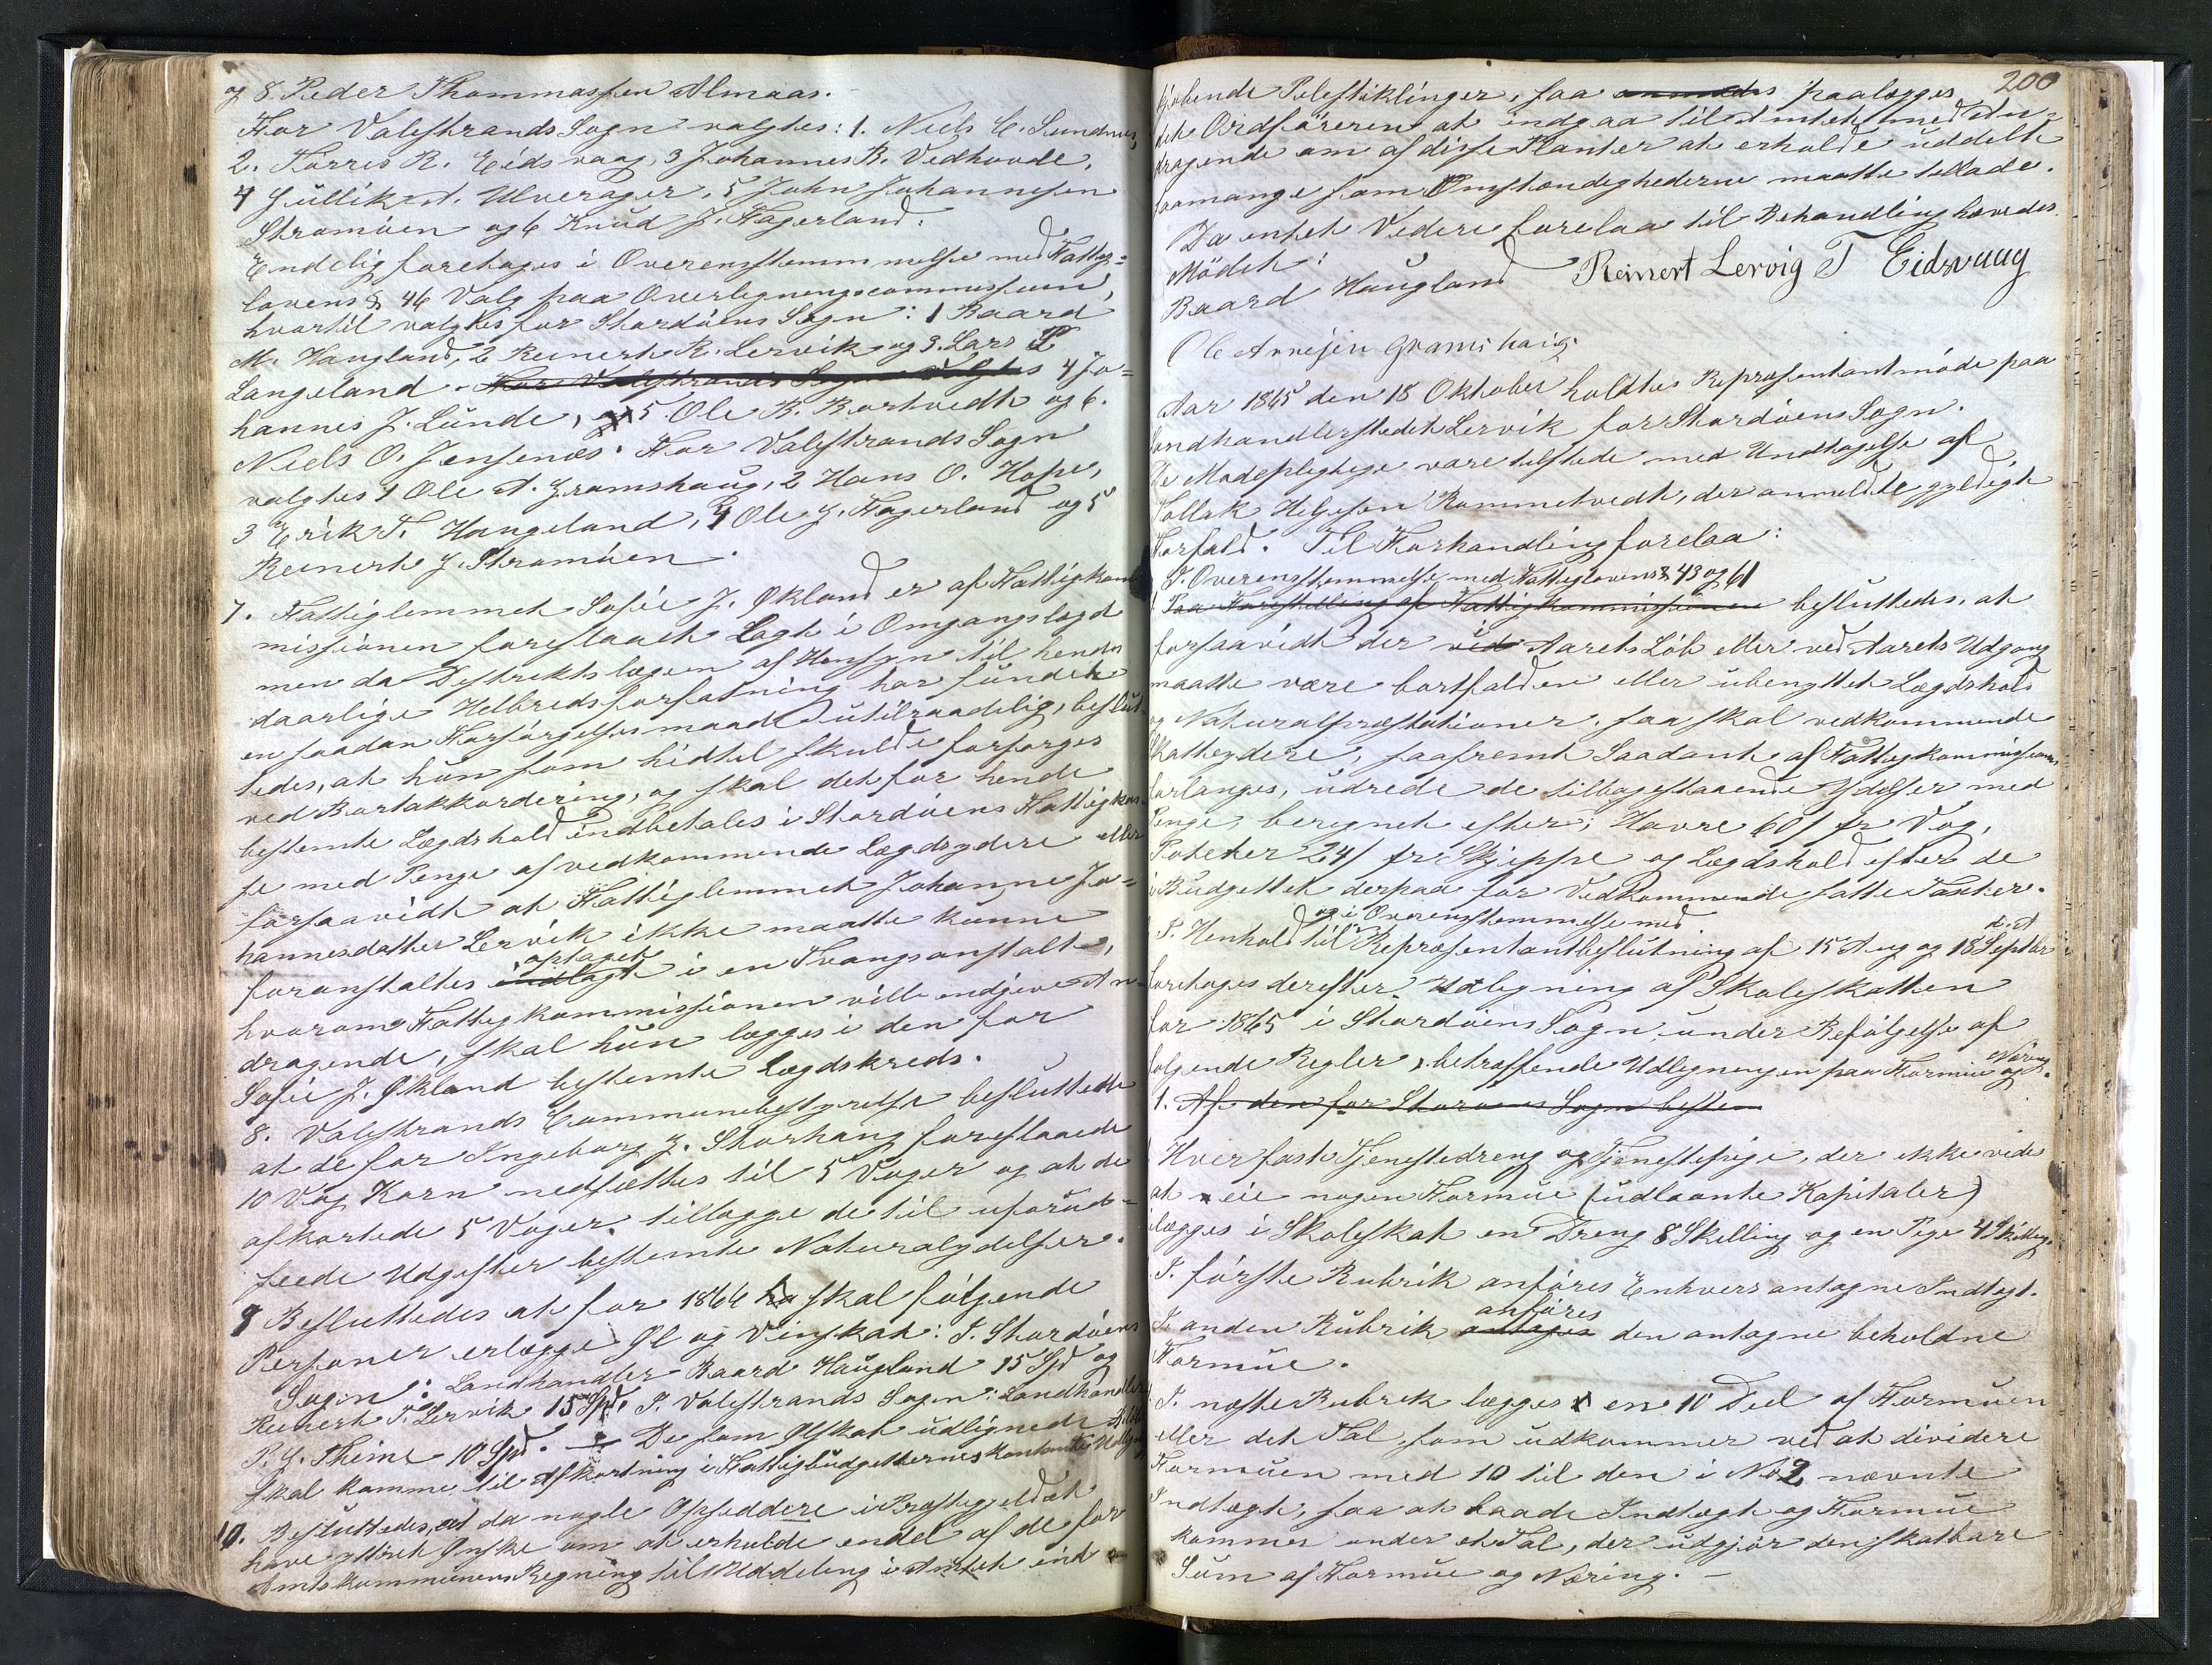 og 8. Peder Thommassen Almaas.
For Valestrands Sogn valgtes: 1. Niels C. Sundnes,
2. Torres R. Eidsvaag, 3 Johannes B. Vedhovde,
4 Gullik A. Ulverager, 5 John Johannessen
Strømøen og 6 Knud J. Fagerland.
Endelig foretoges i Overensstemmnelse med Fattig-
lovens § 46 Valg paa Overligningscommission,
hvortil valgtes for Stordøens Sogn: 1 Baard
M. Haugland, 2 Reinert R. Lervik og 3. Lars P
Langeland - For Valestrands Sogn valgtes 4 Jo-
hannes J. Lunde, og 5 Ole B. Bortvedt og 6.
Niels O. Jensenæs. For Valestrands Sogn
valgtes 1 Ole A. Gramshaug, 2 Hans O. Hope,
3 Erik T. Haugeland, 4 Ole J. Fagerland og 5
Reinert J. Strømøen.
7. Fattiglemmet Sofie J. Økland er af Fattigkom-
missionen foreslaaet Lagt i Omgangslægd
men da Distriktslægen af Hensyn til hendes
daarlige Helbredsforfatning har fundet
en saadan Forsørgelsesmaade utilraadelig, beslut-
tedes, at hun som hidtil skulde forsørges
ved Bortakkordering, og skal det for hende
bestemte Lægdshold indbetales i Stordøens Fattigkas-
se med Penge af vedkommende Lægdsydere eller
forsaavidt at Fattiglemmet Johanne Jo-
hannesdatter Lervik ikke maatte kunne
optaget
foranstaltes indlagt i en Tvangsanstalt,
hvorom Fattigkommissionen ville indgive An-
dragende, skal hun lægges i den for
Sofie J. Økland bestemte Lægdskreds.
8. Valestrands Communebestyrelse besluttede
at de for Ingeborg J. Storhaug foreslaaede
10 Vog Korn nedsættes til 5 Voger og at de
afkortede 5 Voger tillægges de til uforud-
seede Udgifter bestemte Naturalydelser.
9 Besluttedes at for 1864 skal følgende
Personer erlægge Øl og Vinskat: I Stordøens
Sogn: Landhandler Baard Haugland 15 Spd og
Reinert T. Lervik 15 Spd. I Valestrands Sogn: Landhandler
P. G. Theime 10 Spd. De som Ølskat udlignede
skal komme til Afkortning i Fattigbudgetternes kontante
10. Besluttedes, at da nogle Opsiddere i Præstegjeldet
have yttret Ønske om at erholde endel af de for
Amtskommunens Regning til Uddeling i Amtet ind-
200
kjøbende Polestiklinger, saa anmodes paalægges
det Ordføreren at indgaa til Amtet med An-
dragende om af disse Planter at erholde uddelt
saamange som Omstændighederne maatte tillade.
Da intet Videre forelaa til Behandling hævedes
Mødet:
Baard Haugland Reinert Lervig T Eidsvaag
Ole Arnesen Gramshaug
Aar 1865 den 18 Oktober holdtes Repræsentantmøde paa
Landhandlerstedet Lervik for Stordøens Sogn.
De Mødepligtige vare tilstede med Undtagelse af
Tollak Helgesen Rommetvedt, der anmeldte gyldigt
Forfald. Til Forhandling forelaa:
I Overensstemmelse med Fattiglovens § 43 og 61
1 Paa Forestilling af Fattigkommissionen besluttedes, at
forsaavidt der ved Aarets Løb eller ved Aarets Udgang
maatte være bortfalden eller ubenyttet Lægdshold
og Naturalpræstationer, saa skal vedkommende
Skatteydere, saafremt Saadant af Fattigkommissionen
forlanges, udrede de tilbagestaaende Ydelser med
Penge, beregnet efter: Havre 60 s pr Vog,
Poteter 24 s pr Skjeppe og Lægdshold efter de
i Budgettet derpaa for Vedkommende satte Taxter.
og i Overensstemmelse med
I Henhold til Repræsentantbeslutning af 15 Aug og 18 Septbr
d. A
foretoges derefter Udligning af Skoleskatten
for 1865 i Stordøens Sogn under Befølgelse af
følgende Regler betræffende Udligningen paa Formue og
Næring.
1. Af den for Stordøens Sogn bestem
Hver fast Tjenestedreng og Tjenestepige, der ikke vides
at eie nogen Formue (udlaante Kapitaler)
ilægges i Skoleskat en Dreng 8 Skilling og en Pige 4 Skilling.
I første Rubrik anføres Enhvers antagne Indtægt.
anføres
I anden Rubrik antages den antagne beholdne
Formue.
I næste Rubrik lægges en 10 Deel af Formuen
eller det Tal, som udkommer ved at dividere
Formuen med 10 til den i No 2 nævnte
Indtægt, saa at baade Indtægt og Formue
kommer under et Tal, der udgjør den skatbare
Sum af Formue og Næring. -